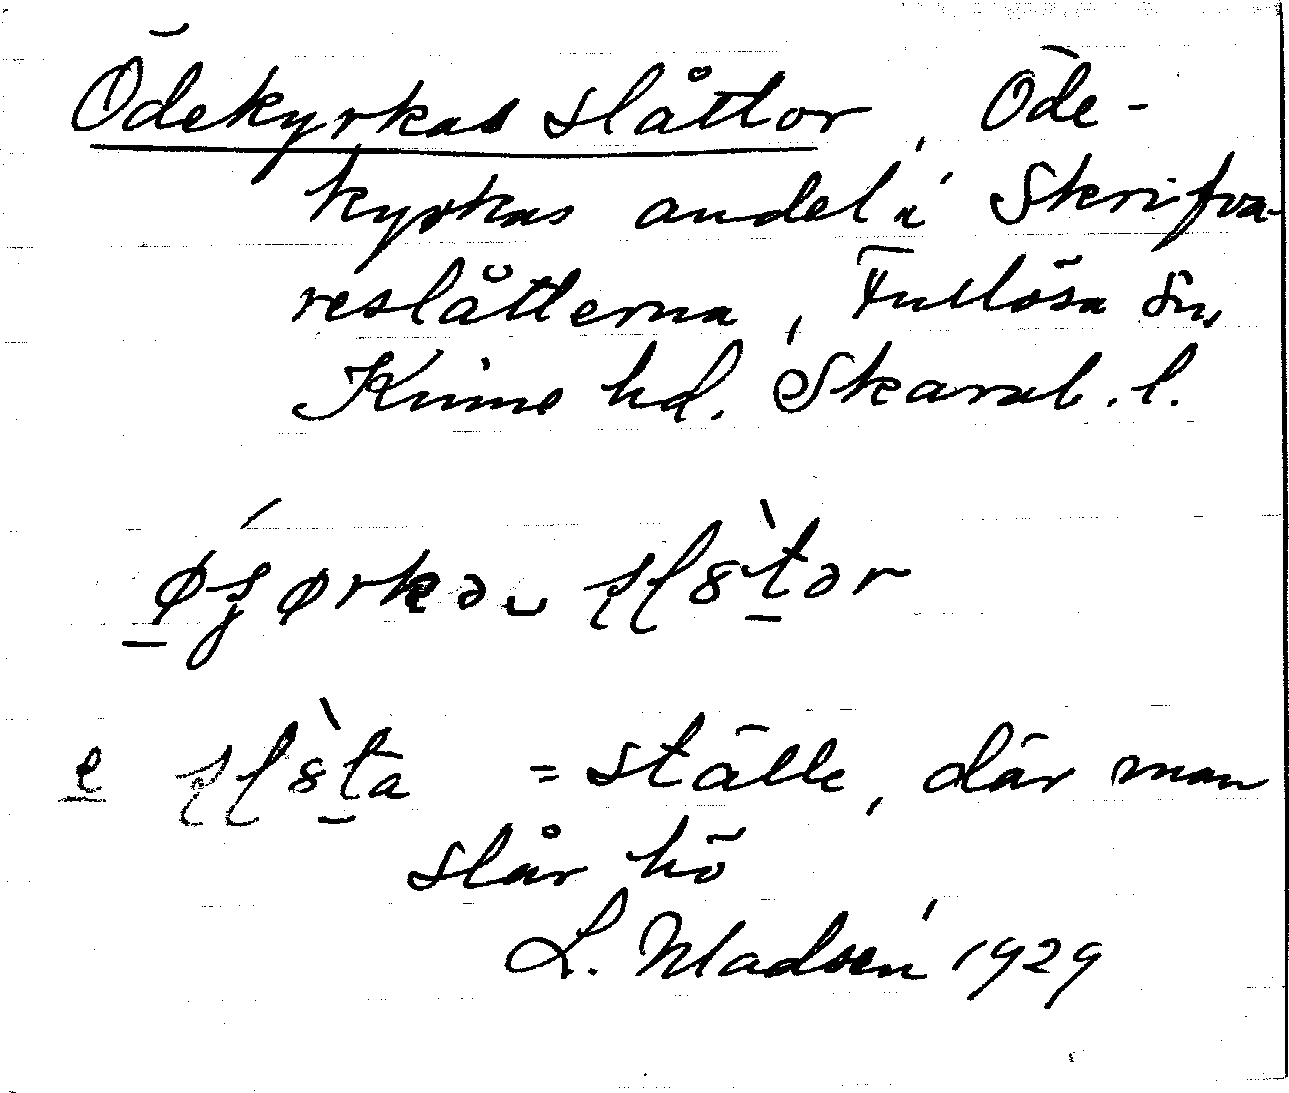 Ödekyrkas slåttor, Öde-
kyrkas andel i Skrifva-
reslåtterna, Fullösa sn,
Kinne hd. Skarab. l.
= ställe, där man
slår hö
L. Madsén 1929